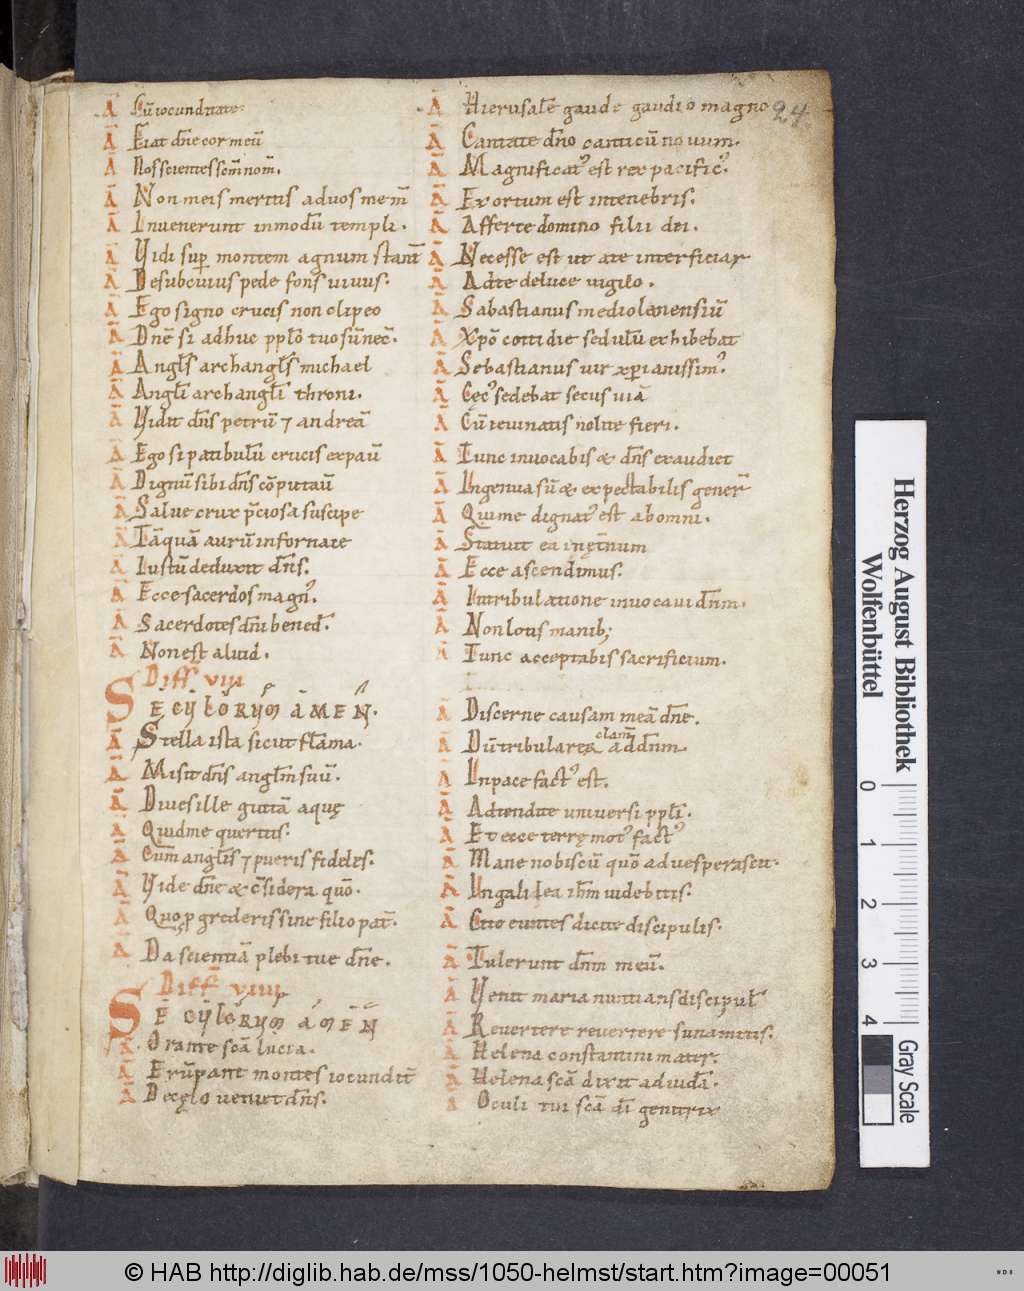 A Cū iocunditate.
A Fiat dn̄e cor meū
A Nos scientes scm̄ nom̄.
A Non meis meritis ad uos me m̄
A Inuenerunt in modū templi.
A Vidi sup̱ montem agnum stant̄
A De sub cuius pede fons uiuus.
A Ego signo crucis non clipeo
A Dn̄e si adhuc pplō tuo sū nec̄.
A Angls̄ archangls̄ michael
A Anglī archanglī throni.
A Vidit dn̄s petrū ⁊ andreā
A Ego si patibulū crucis expauī
A Dignū sibi dn̄s cōputauī
A Salue crux p̄ciosa suscipe
A Tāquā aurū in fornace
A Iustū deduxit dn̄s.
A Ecce sacerdos magn᾿.
A Sacerdotes dn̄i bened̄.
A Non est aliud.
Diff̄ VIII
SECVLORVM AMEN.
A Stella ista sicut flāma.
A Misit dn̄s anglm̄ suū.
A Diues ille guttā aquę
A Quid me queritis.
A Cum angl̄is ⁊ pueris fideles.
A Vide dn̄e & c̄sidera quō.
A Quo p̱grederis sine filio pat̄.
A Da scientiā plebi tue dn̄e.
Diff̄ VIIII
SECVLORVM AMEN
A Orante scā lucia.
A Erūpant montes iocundit̄
A De cęlo ueniet dn̄s.
A Hierusalē gaude gaudio magno 24
A Cantate dn̄o canticū nouum.
A Magnificat᾿ est rex pacific᾿.
A Exortum est in tenebris.
A Afferte domino filii dei.
A Necesse est ut a te interficiar
A Ad te de luce uigilo.
A Sabastianus mediolanensiū
A Xp̄o cottidie sedulū exhibebat
A Sebastianus uir xp̄ianissim᾿.
A Cęc᾿ sedebat secus uiā
A Cū ieiunatis nolite fieri.
A Tunc inuocabis & dn̄s exaudiet
A Ingenua sū & expectabilis gener̄
A Qui me dignat᾿ est ab omni.
A Statuit ea in ęt̄num
A Ecce ascendimus.
A In tribulatione inuocaui dn̄m.
A Non lotis manib;
A Tunc acceptabis sacrificium.
A Discerne causam meā dn̄e.
A Dū tribularer clam̄ ad dn̄m.
A In pace fact᾿ est.
A Adtendite uniuersi pplī.
A Et ecce terrę mot᾿ fact᾿
A Mane nobiscū quō aduesperascit.
A In galilea ihm̄ uidebitis.
A Cito euntes dicite discipulis.
A Tulerunt dn̄m meū.
A Venit maria nuntians discipul̄
A Reuertere reuertere sunamitis.
A Helena constantini mater.
A Helena scā dixit ad iudā.
A Oculi tui scā dī genitrix
Herzog August Bibliothek
Wolfenbüttel
0 1 2 3 4
Gray Scale
© HAB http://diglib.hab.de/mss/1050-helmst/start.htm?image=00051